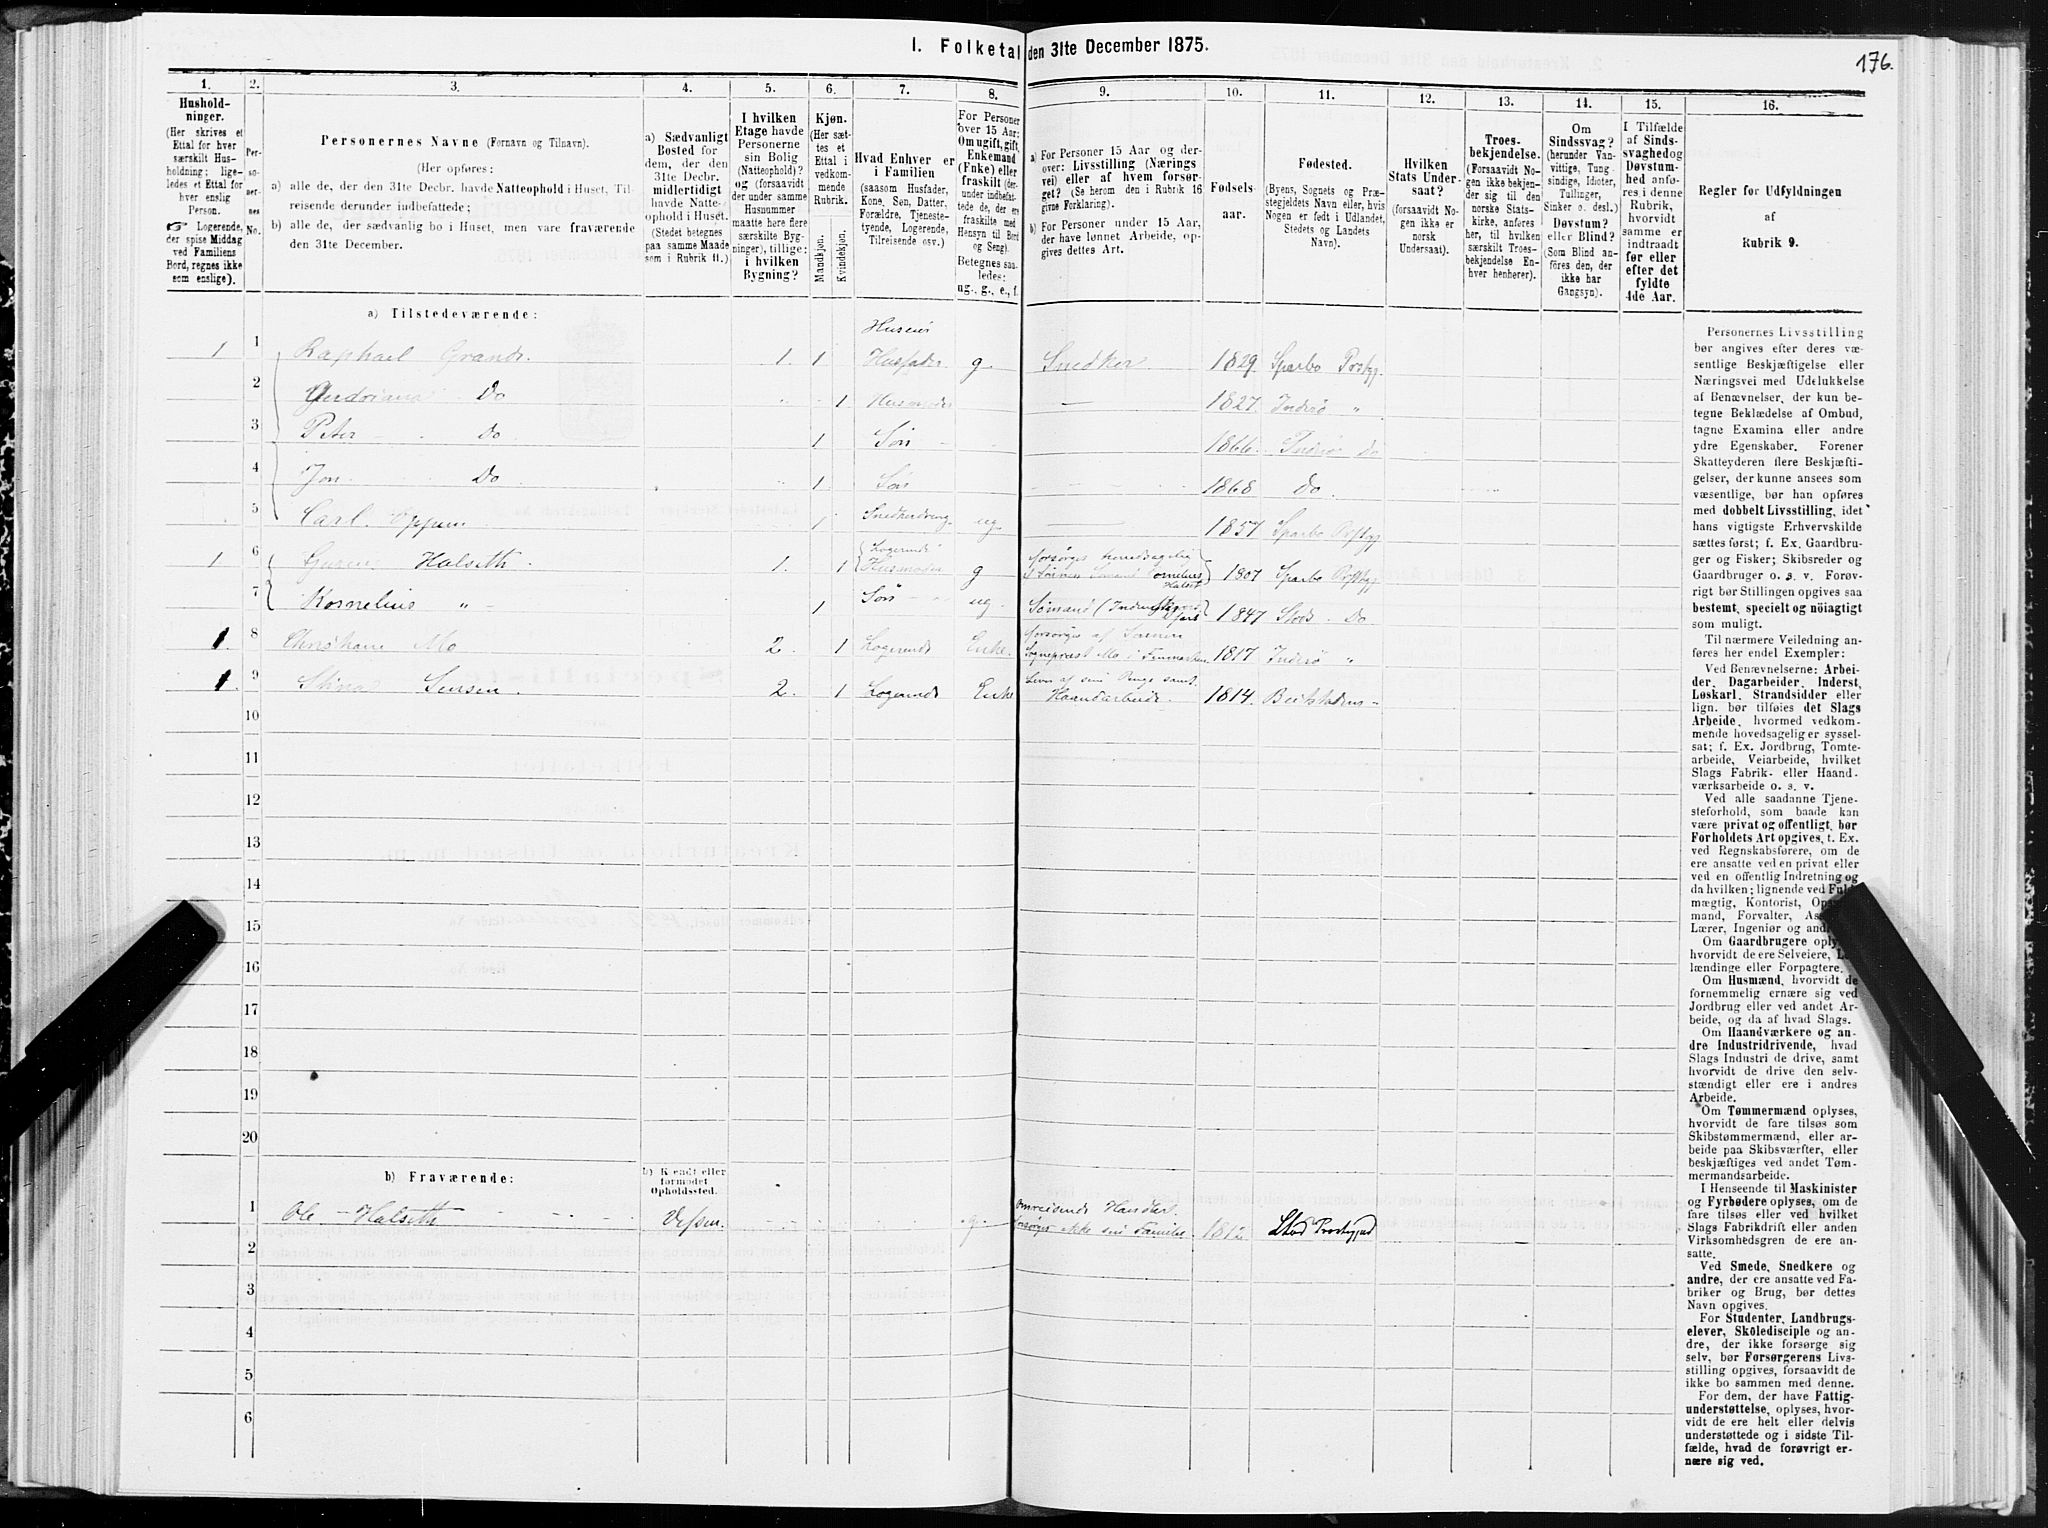 176.
I. Folketal den 31te December 1875.
1.
Hushold-
ninger.
(Her skrives et
Ettal for hver
særskilt Hus-
holdning; lige-
ledes et Ettal for
hver enslig
Person.
☞ Logerende,
der spise Middag
ved Familiens
Bord, regnes ikke
som enslige).
2.
Per-
so-
ner-
nes
No.
3.
Personernes Navne (Fornavn og Tilnavn).
(Her opføres:
a) alle de, der den 31te Decbr. havde Natteophold i Huset, Til-
reisende derunder indbefattede;
b) alle de, der sædvanlig bo i Huset, men vare fraværende
den 31te December.
4.
a) Sædvanligt
Bosted for
dem, der den
31te Decbr.
midlertidigt
havde Natte-
ophold i Huset.
(Stedet betegnes
paa samme Maade
som i Rubrik 11.)
5.
I hvilken
Etage havde
Personerne
sin Bolig
(Natteophold)?
og (forsaavidt
der under samme
Husnummer
maatte høre flere
særskilte Byg-
ninger), tillige:
i hvilken
Bygning?
6.
Kjøn.
(Her sæt-
tes et
Ettal i
vedkom-
mende
Rubrik.
Mandkjøn.
Kvindekjøn.
7.
Hvad Enhver er
i Familien
(saasom Husfader,
Kone, Søn, Datter,
Forældre, Tjeneste-
tyende, Logerende,
Tilreisende osv.)
8.
For Personer
over 15 Aar:
Om ugift, gift,
Enkemand
(Enke) eller
fraskilt (der-
under indbefat-
tede de, der ere
fraskilte med
Hensyn til Bord
og Seng).
Betegnes saa-
ledes:
ug., g., e., f.
9.
a) For Personer 15 Aar og der-
over: Livsstilling (Nærings-
vei) eller af hvem forsør-
get? (Se herom den i Rubrik 16
givne Forklaring).
b) For Personer under 15 Aar,
der have lønnet Arbeide, op-
gives dettes Art.
10.
Fødsels-
aar.
11.
Fødested.
(Byens, Sognets og Præ-
stegjeldets Navn eller, hvis
Nogen er født i Udlandet,
Stedets og Landets
Navn).
12.
Hvilken
Stats Under-
saat?
(forsaavidt No-
gen ikke er
norsk
Undersaat).
13.
Troes-
bekjendelse.
(Forsaavidt No-
gen ikke bekjen-
der sig til den
norske Stats-
kirke, anføres
her, til hvilken
særskilt Troes-
bekjendelse En-
hver henhører).
14.
Om
Sindssvag?
(herunder Van-
vittige, Tung-
sindige, Idioter,
Tullinger,
Sinker o. desl.)
Døvstum?
eller Blind?
(Som Blind an-
føres den, der
ikke har
Gangsyn).
15.
I Tilfælde
af Sinds-
svaghed og
Døvstum-
hed anfø-
res i denne
Rubrik,
hvorvidt
samme er
indtraadt
før eller
efter det
fyldte
4de Aar.
16.
Regler for Udfyldningen
af
Rubrik 9.
a) Tilstedeværende:
1 1 Raphael Grande. 1. 1 Huseier Husfader g Snedker. 1829. Sparbo Prstgj.
2 Do " 1 Husmoder 1827. Inderø "
3 Peter Do 1 Søn 1866. Inderø Do
4 Jon Do 1 Søn 1868 Do.
5 Carl 1 ug 1857 Sparbo
1 6 Halseth. 1. 1 Logerende Husmoder g 1807 Sparbo
7 Kornelius " 1 Søn ug. Sømand 1847 Stods Do.
1. 8 Mo 2. 1 Logerende Enke. forsørges af Sønnen Sogneprest Mo i Finmarken 1817 Inderø "
1. 9 Stina Jensen. 2. 1 Logerende Enke Lever af sine Penge samt Haandarbeide. 1814.
10
11
12
13
14
15
16
17
18
19
20
b) Fraværende:
b) Kjendt eller
formodet
Opholdssted.
1 Ole Halseth g. Omreisende Handler. forsørger ikke sin Familie 1812 Stod
2
3
4
5
6
Personernes Livsstilling
bør angives efter deres væ-
sentlige Beskjæftigelse eller
Næringsvei med Udelukkelse
af Benævnelser, der kun be-
tegne Beklædelse af Ombud,
tagne Examina eller andre
ydre Egenskaber. Forener
Skatteyderen flere Beskjæfti-
gelser, der kunne ansees som
væsentlige, bør han opføres
med dobbelt Livsstilling, idet
hans vigtigste Erhvervskilde
sættes først; f. Ex. Gaardbru-
ger og Fisker; Skibsreder og
Gaardbruger o. s. v. Forøv-
rigt bør Stillingen opgives saa
bestemt, specielt og nöiagtigt
som muligt.
Til nærmere Veiledning an-
føres her endel Exempler:
Ved Benævnelserne: Arbei-
der, Dagarbeider, Inderst,
Løskarl, Strandsidder eller
lign. bør tilføies det Slags
Arbeide, hvormed vedkom-
mende hovedsagelig er syssel-
sat; f. Ex. Jordbrug, Tomte-
arbeide, Veiarbeide, hvilket
Slags Fabrik- eller Haand-
værksarbeide o. s. v.
Ved alle saadanne Tjene-
steforhold, som baade kan
være privat og offentligt, bør
Forholdets Art opgives, t. Ex.
ved Regnskabsførere, om de
ere ansatte ved en privat eller
ved en offentlig Indretning og
da hvilken; lignende ved Fuld-
mægtig, Kontorist,
mand, Forvalter,
Lærer, Ingeniør og
Om Gaardbrugere
hvorvidt de ere Selveiere,
lændinge eller Forpagtere.
Om Husmænd, hvorvidt de
fornemmelig ernære sig ved
Jordbrug eller ved andet Ar-
beide, og da af hvad Slags.
Om Haandværkere og an-
dre Industridrivende, hvad
Slags Industri de drive, samt
hvorvidt de drive den selv-
stændigt eller ere i andres
Arbeide.
Om Tømmermænd oplyses,
hvorvidt de fare tilsøs som
Skibstømmermænd, eller ar-
beide paa Skibsværfter, eller
beskjæftiges ved andet Tøm-
mermandsarbeide.
I Henseende til Maskinister
og Fyrbødere oplyses, om de
fare tilsøs eller ved hvilket
Slags Fabrikdrift eller anden
Virksomhedsgren de ere an-
satte.
Ved Smede, Snedkere og
andre, der ere ansatte ved Fa-
briker og Brug, bør dettes
Navn opgives.
For Studenter, Landbrugs-
elever, Skoledisciple og an-
dre, der ikke forsørge sig
selv, bør Forsørgerens Livs-
stilling opgives, forsaavidt de
ikke bo sammen med denne.
For dem, der have Fattig-
understøttelse, oplyses, hvor-
vidt de ere helt eller delvis
understøttede og i sidste Til-
fælde, hvad de forøvrigt er-
nære sig ved.